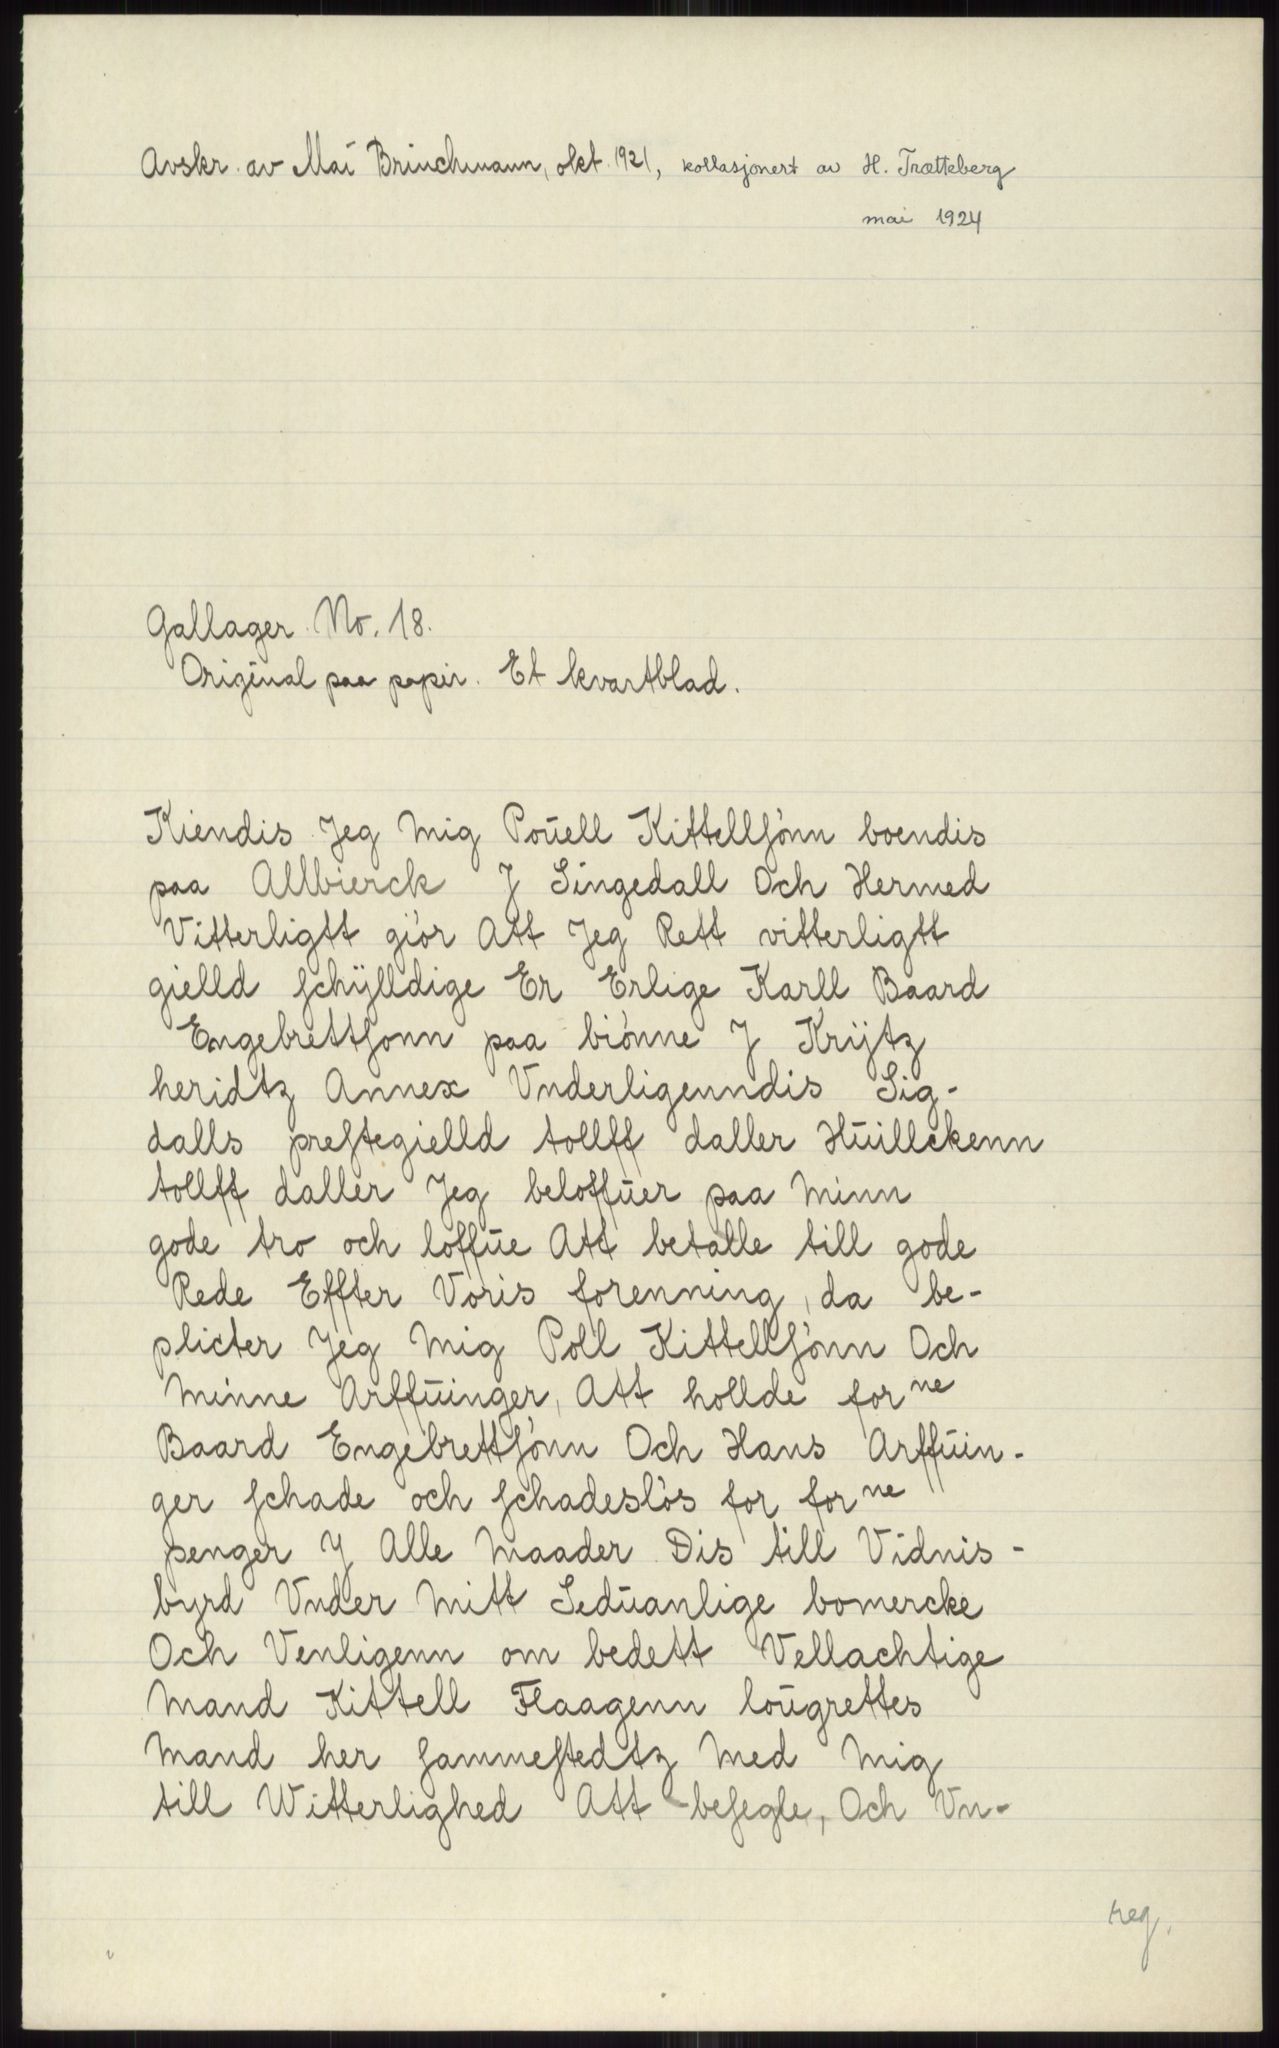 Avskr. av Mai Brinchmann, okt. 1921, kollasjonert av H. Trætteberg
mai 1924
Gallager No. 18.
Original paa papir. Et kvartblad.
Kiendis Jeg Mig Poŭell Kittellſönn boendis
paa Allbierck J Singedall Och Hermed
Vitterligtt giör Att Jeg Rett vitterligtt
gielld ſchÿlldige Er Erlige Karll Baard
Engebrettſonn paa biönne J Krÿtz
heridtz Annex Vnderligenndis Sig-
dalls preſtegielld tollff daller Hŭillckenn
tollff daller Jeg beloffŭer paa Minn
gode tro och loffŭe Att betalle till gode
Rede Effter Voris forenning, da be-
plicter Jeg Mig Poll Kittellſönn Och
Minne Arffŭinger, Att hollde for ne
Baard Engebrettſönn Och Hans Arffŭin-
ger ſchade och ſchadeslös for for ne
penger Y Alle Maader Dis till Vidnis-
byrd Vnder Mitt Sedŭanlige bomercke
Och Venligenn om bedett Vellachtige
Mand Kittell Flaagenn loŭgrettes
Mand her ſammeſtedtz Med Mig
till Witterlighed Att beſegle, Och Vn-
reg.